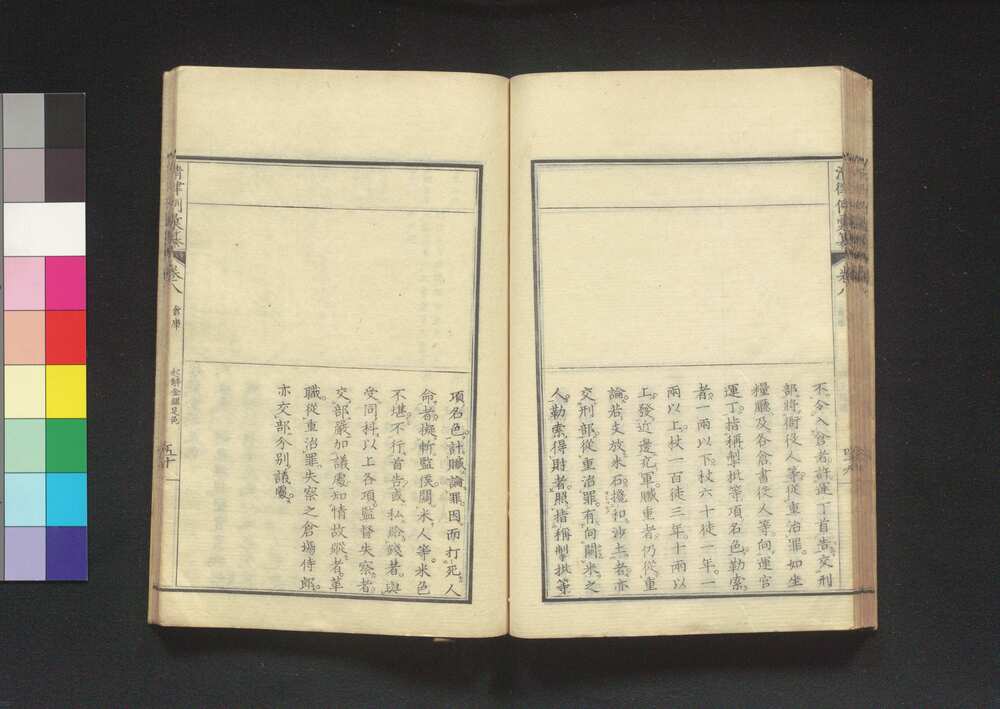 清律例彙纂
卷八
倉庫
不分入倉者許運丁首告交刑
部將衙役人等從重治罪如坐
糧廳及各倉書役人等向運官
運丁指稱掣批等項名色勒索
者一兩以下杖六十徒一年一
兩以上杖一百徒三年十兩以
上發近邊充軍贓重者仍從重
論若支放米石攙和沙土者亦
交刑部從重治罪有向關米之
人勒索得財者照指稱掣批等
項名色計贓論罪因而打死人
命者擬斬監候關米人等米色
不堪不行首告或私賒錢者與
受同科以上各項監督失察者
交部嚴加議處知情故縱者革
職從重治罪失察之倉場侍郎
亦交部分別議處
清律例彙纂
卷八
倉庫
收解金銀足色
五十